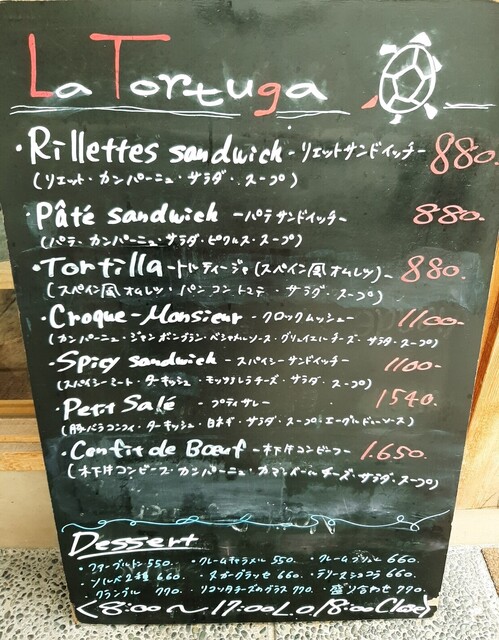 La Tortuga
・Rillettes sandwich - リエットサンドイッチー 880.
(リエット・カンパーニュ・サラダ・スープ)
・Pâté sandwich - パテサンドイッチー 880.
(パテ・カンパーニュ・サラダ・ピクルス・スープ)
・Tortilla - トルティージャ(スペイン風オムレツ) - 880.
(スペイン風オムレツ・パンコントマテ・サラダ・スープ)
・Croque-Monsieur - クロックムッシュー 1100-
(カンパーニュ・ジャンボンブラン・ベシャメルソース・グリュイエルチーズ・サラダ・スープ)
・Spicy sandwich - スパイシーサンドイッチー 1100-
(スパイシーミート・ターキッシュ・モッツァレラチーズ・サラダ・スープ)
・Petit Salé - プティサレー 1540.
(豚バラコンフィ・ターキッシュ・白ネギ・サラダ・スープ)
・Confit de Bœuf - 木下牛コンビーフー 1.650.
(木下牛コンビーフ・カンパーニュ・カマンベールチーズ・サラダ・スープ)
Dessert
・ファーブルトン 550. ・クレームキャラメル 550. ・クレームブリュレ 660.
・ソルベ2種 660. ・ヌガーグラッセ 660. ・テリーヌショコラ 660.
・クランブル 770. ・リコッタチーズのグラス 770. ・盛り合わせ 770.
<8:00〜17:00L.O 18:00Close>